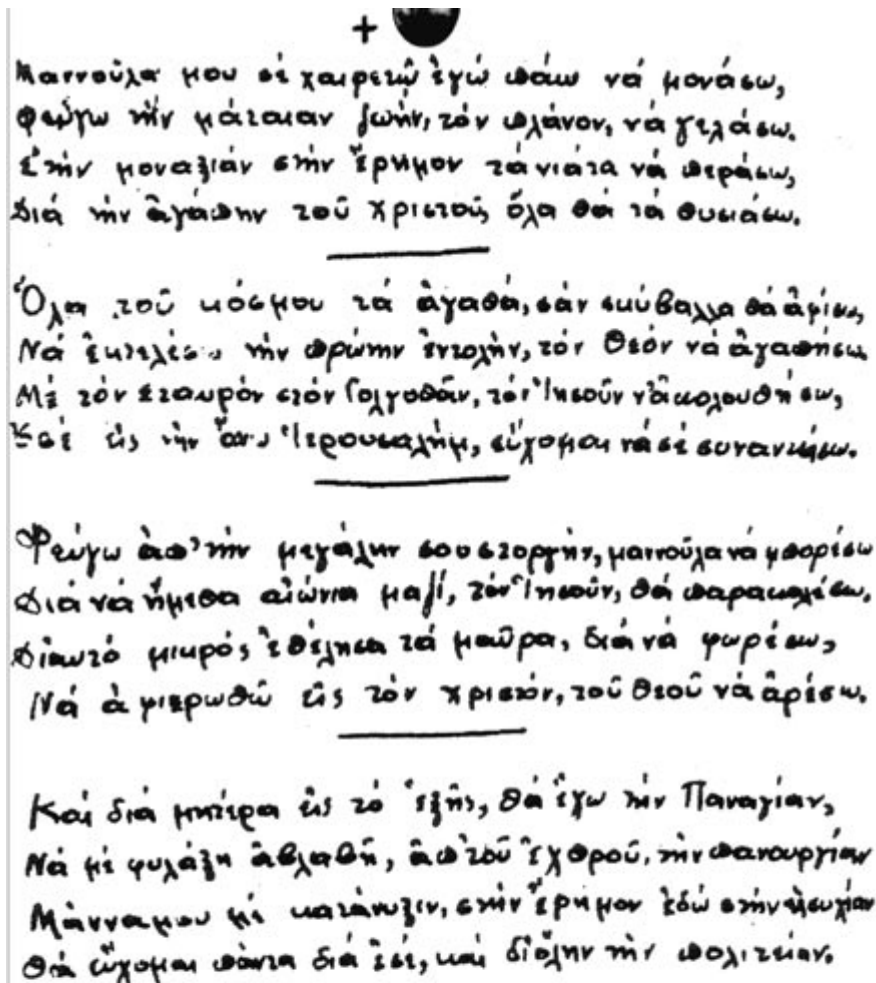 +
Μαννούλα μου σέ χαιρετῶ ἐγώ πάω νά μονάσω,
Φεύγω τήν μάταιαν ζωήν, τόν πλάνον, νά γελάσω.
Στήν μοναξιάν στήν ἔρημον τά νιάτα νά περάσω,
Διά τήν ἀγάπην τοῦ Χριστοῦ, ὅλα θά τά θυσιάσω.
Ὅλα τοῦ κόσμου τά ἀγαθά, σάν σκύβαλλα θά ἀφίσω,
Νά ἐκτελέσω τήν πρώτην ἐντολήν, τόν Θεόν νά ἀγαπήσω.
Μέ τόν Σταυρόν στόν Γολγοθᾶν, τόν Ἰησοῦν ν' ἀκολουθήσω,
Ἐσέ εἰς τήν ἄνω Ἰερουσαλήμ, εὔχομαι νά σέ συναντήσω.
Φεύγω ἀπ' τήν μεγάλην σου στοργήν, μαννούλα νά μπορέσω
Διά νά ἤμεθα αἰώνια μαζί, τόν Ἰησοῦν, θά παρακαλέσω.
Δι' αυτό μικρός ἐθέλησα τά μαῦρα, διά νά φορέσω,
Νά ἀφιερωθῶ εἰς τόν Χριστόν, τοῦ Θεοῦ νά ἀρέσω.
Καί διά μητέρα εἰς τό ἑξῆς, θά ἔχω τήν Παναγίαν,
Νά μέ φυλάξῃ ἀβλαβῆ, ἀπ' τοῦ ἐχθροῦ, τήν πανουργίαν
Μάννα μου μέ κατάνυξιν, στήν ἔρημον ἐδώ στήν ἡσυχίαν
Θά εὔχομαι πάντα διά ἐσέ, καί δι' ὅλην τήν πολιτείαν.